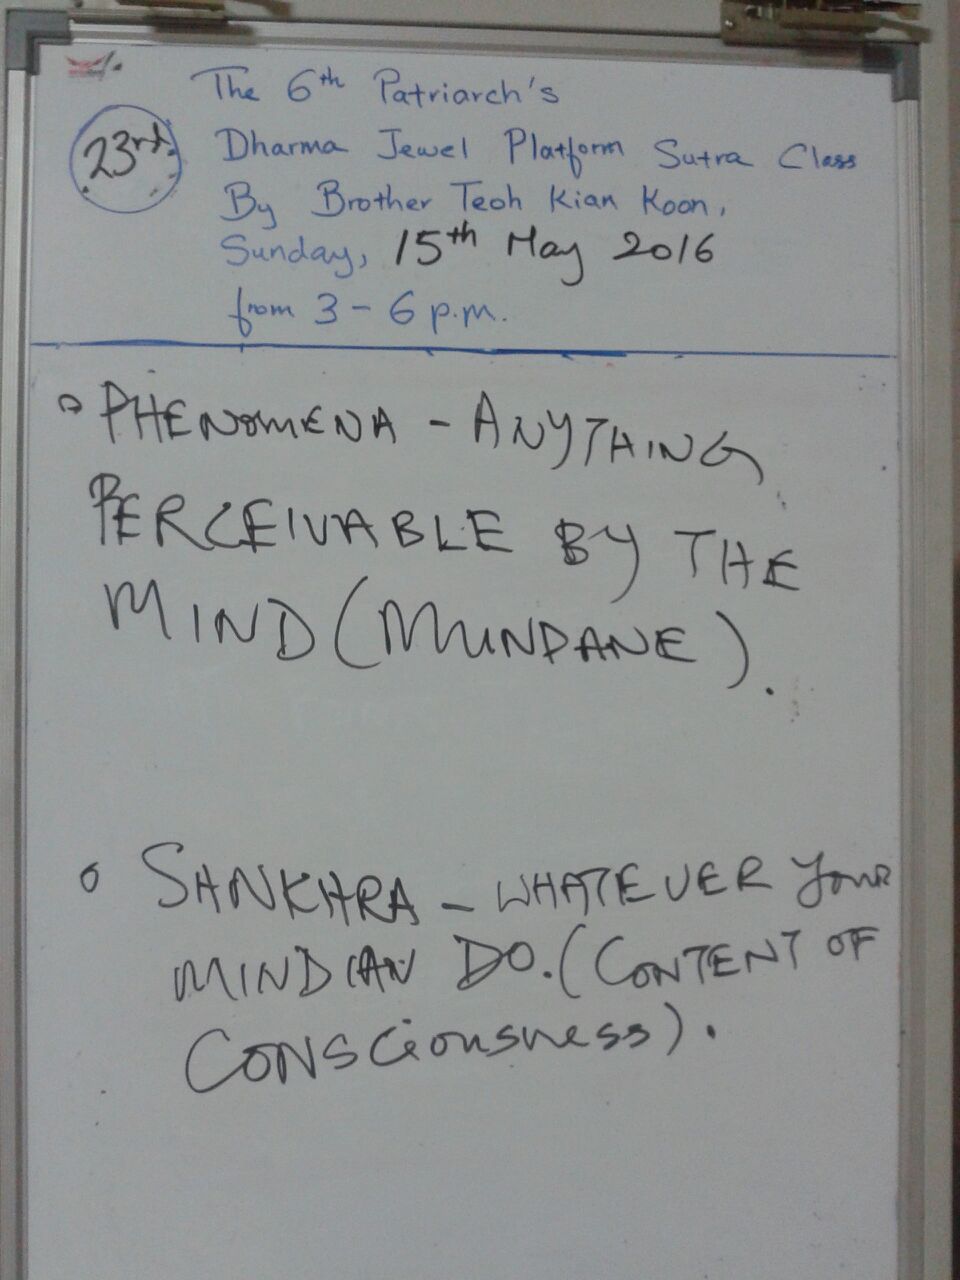 The 6th Patriarch's
23rd
Dharma Jewel Platform Sutra Class
By Brother Teoh Kian Koon,
Sunday, 15th May 2016
from 3 - 6 p.m.
PHENOMENA - ANYTHING
PERCEIVABLE BY THE
MIND (MUNDANE).
SANKHRA - WHATEVER YOUR
MIND CAN DO. (CONTENT OF
CONSCIOUSNESS).